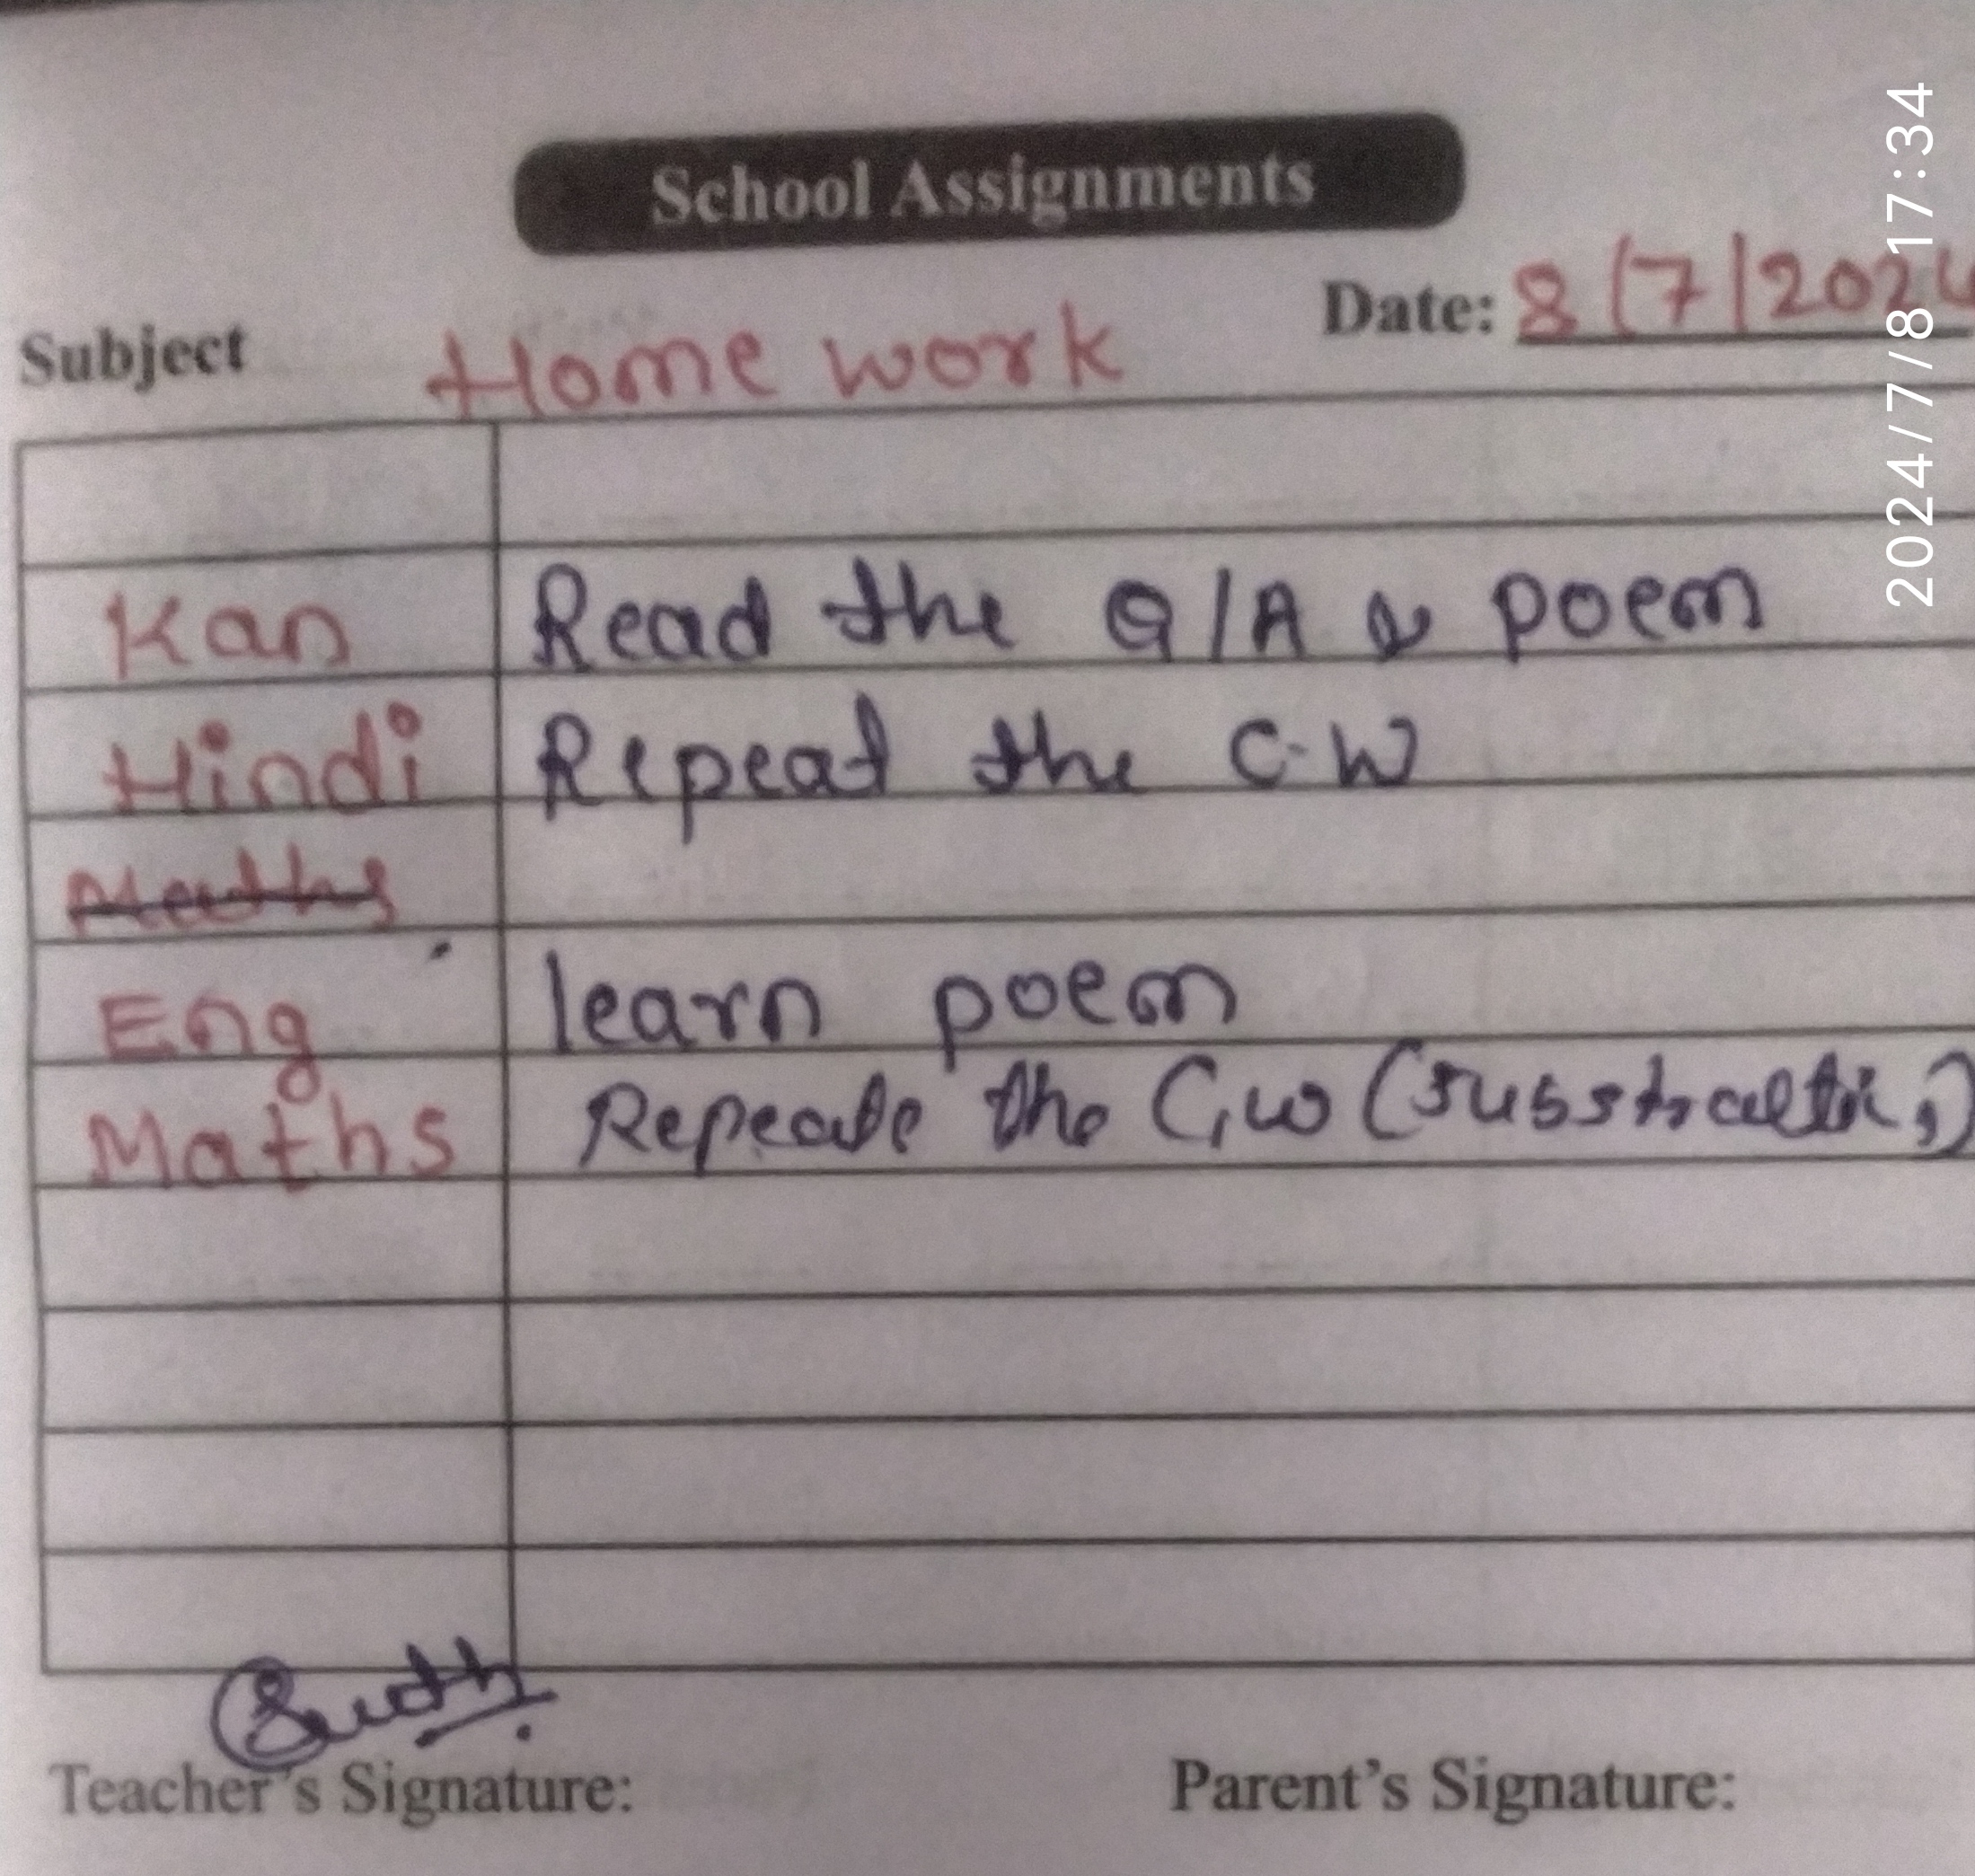 School Assignments
Date: 8/7/2024
Subject Home work
Kan Read the Q/A & poem
Hindi Repeat the C.W
Maths
Eng learn poem
Maths Repeate the C,W (Susstraction)
Teacher's Signature: Parent's Signature:
2024/7/8 17:34